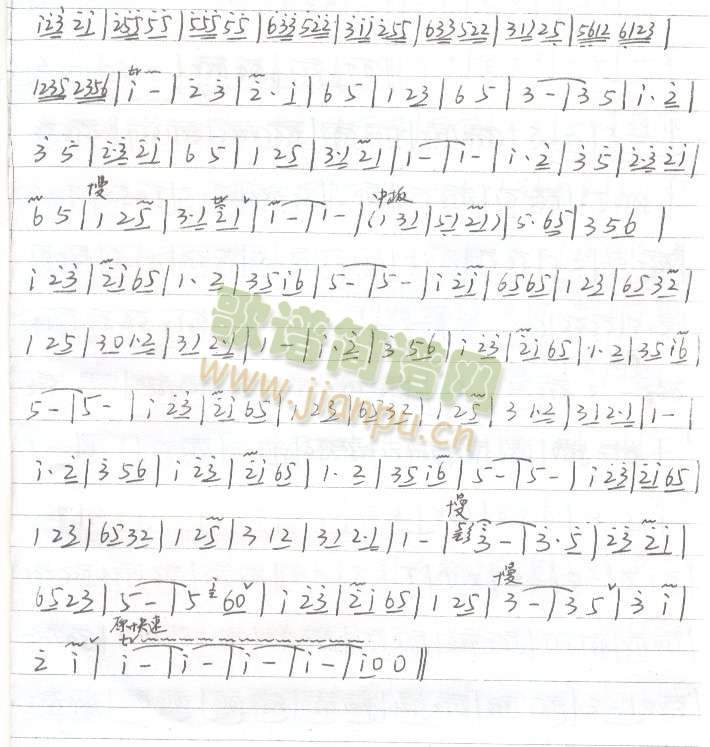 i̇2̇3̇ 2̇i̇|2̇5̇5̇ 5̇5̇|5̇5̇5̇ 5̇5̇|63̇3̇ 5̇2̇2̇|3̇i̇i̇ 2̇55|633 522|312 25|5612 6123|
1235 2356|i̇ -|2̇ 3̇|2̇·i̇|6 5|1 23|6 5|3 -|3 5|i̇·2̇|
3̇ 5̇|2̇·3̇ 2̇i̇|6 5|1 25|3·1 21|1 -|1 -|i̇·2̇|3̇ 5̇|2̇·3̇ 2̇i̇|
慢
6 5|1 25|3·1 21|1 -|1 -|(1 31|51 21)|5·65|3 56|
中板
i̇ 2̇3̇|2̇i̇ 65|1·2|35i̇6|5 -|5 -|i̇ 2̇i̇|6565|1 23|6532|
1 25|301·2|312·1|1 -|i̇·2̇|3̇ 56|i̇ 2̇3̇|2̇i̇ 65|1·2|35i̇6|
5 -|5 -|i̇ 2̇3̇|2̇i̇ 65|1 23|6532|1 25|3 1·2|312·1|1 -|
i̇·2̇|3̇ 56|i̇ 2̇3̇|2̇i̇ 65|1·2|35i̇6|5 -|5 -|i̇ 2̇3̇|2̇i̇65|
慢
1 23|6532|1 25|3 12|312·1|1 -|3̇ -|3̇·5̇|2̇3̇ 2̇i̇|
慢
6523|5 -|5 60|i̇ 2̇3̇|2̇i̇ 65|1 25|3 -|3 5|3̇ i̇|
原快速
2̇ i̇|i̇ -|i̇ -|i̇ -|i̇ -|i̇00‖
歌谱简谱网
www.jianpu.cn